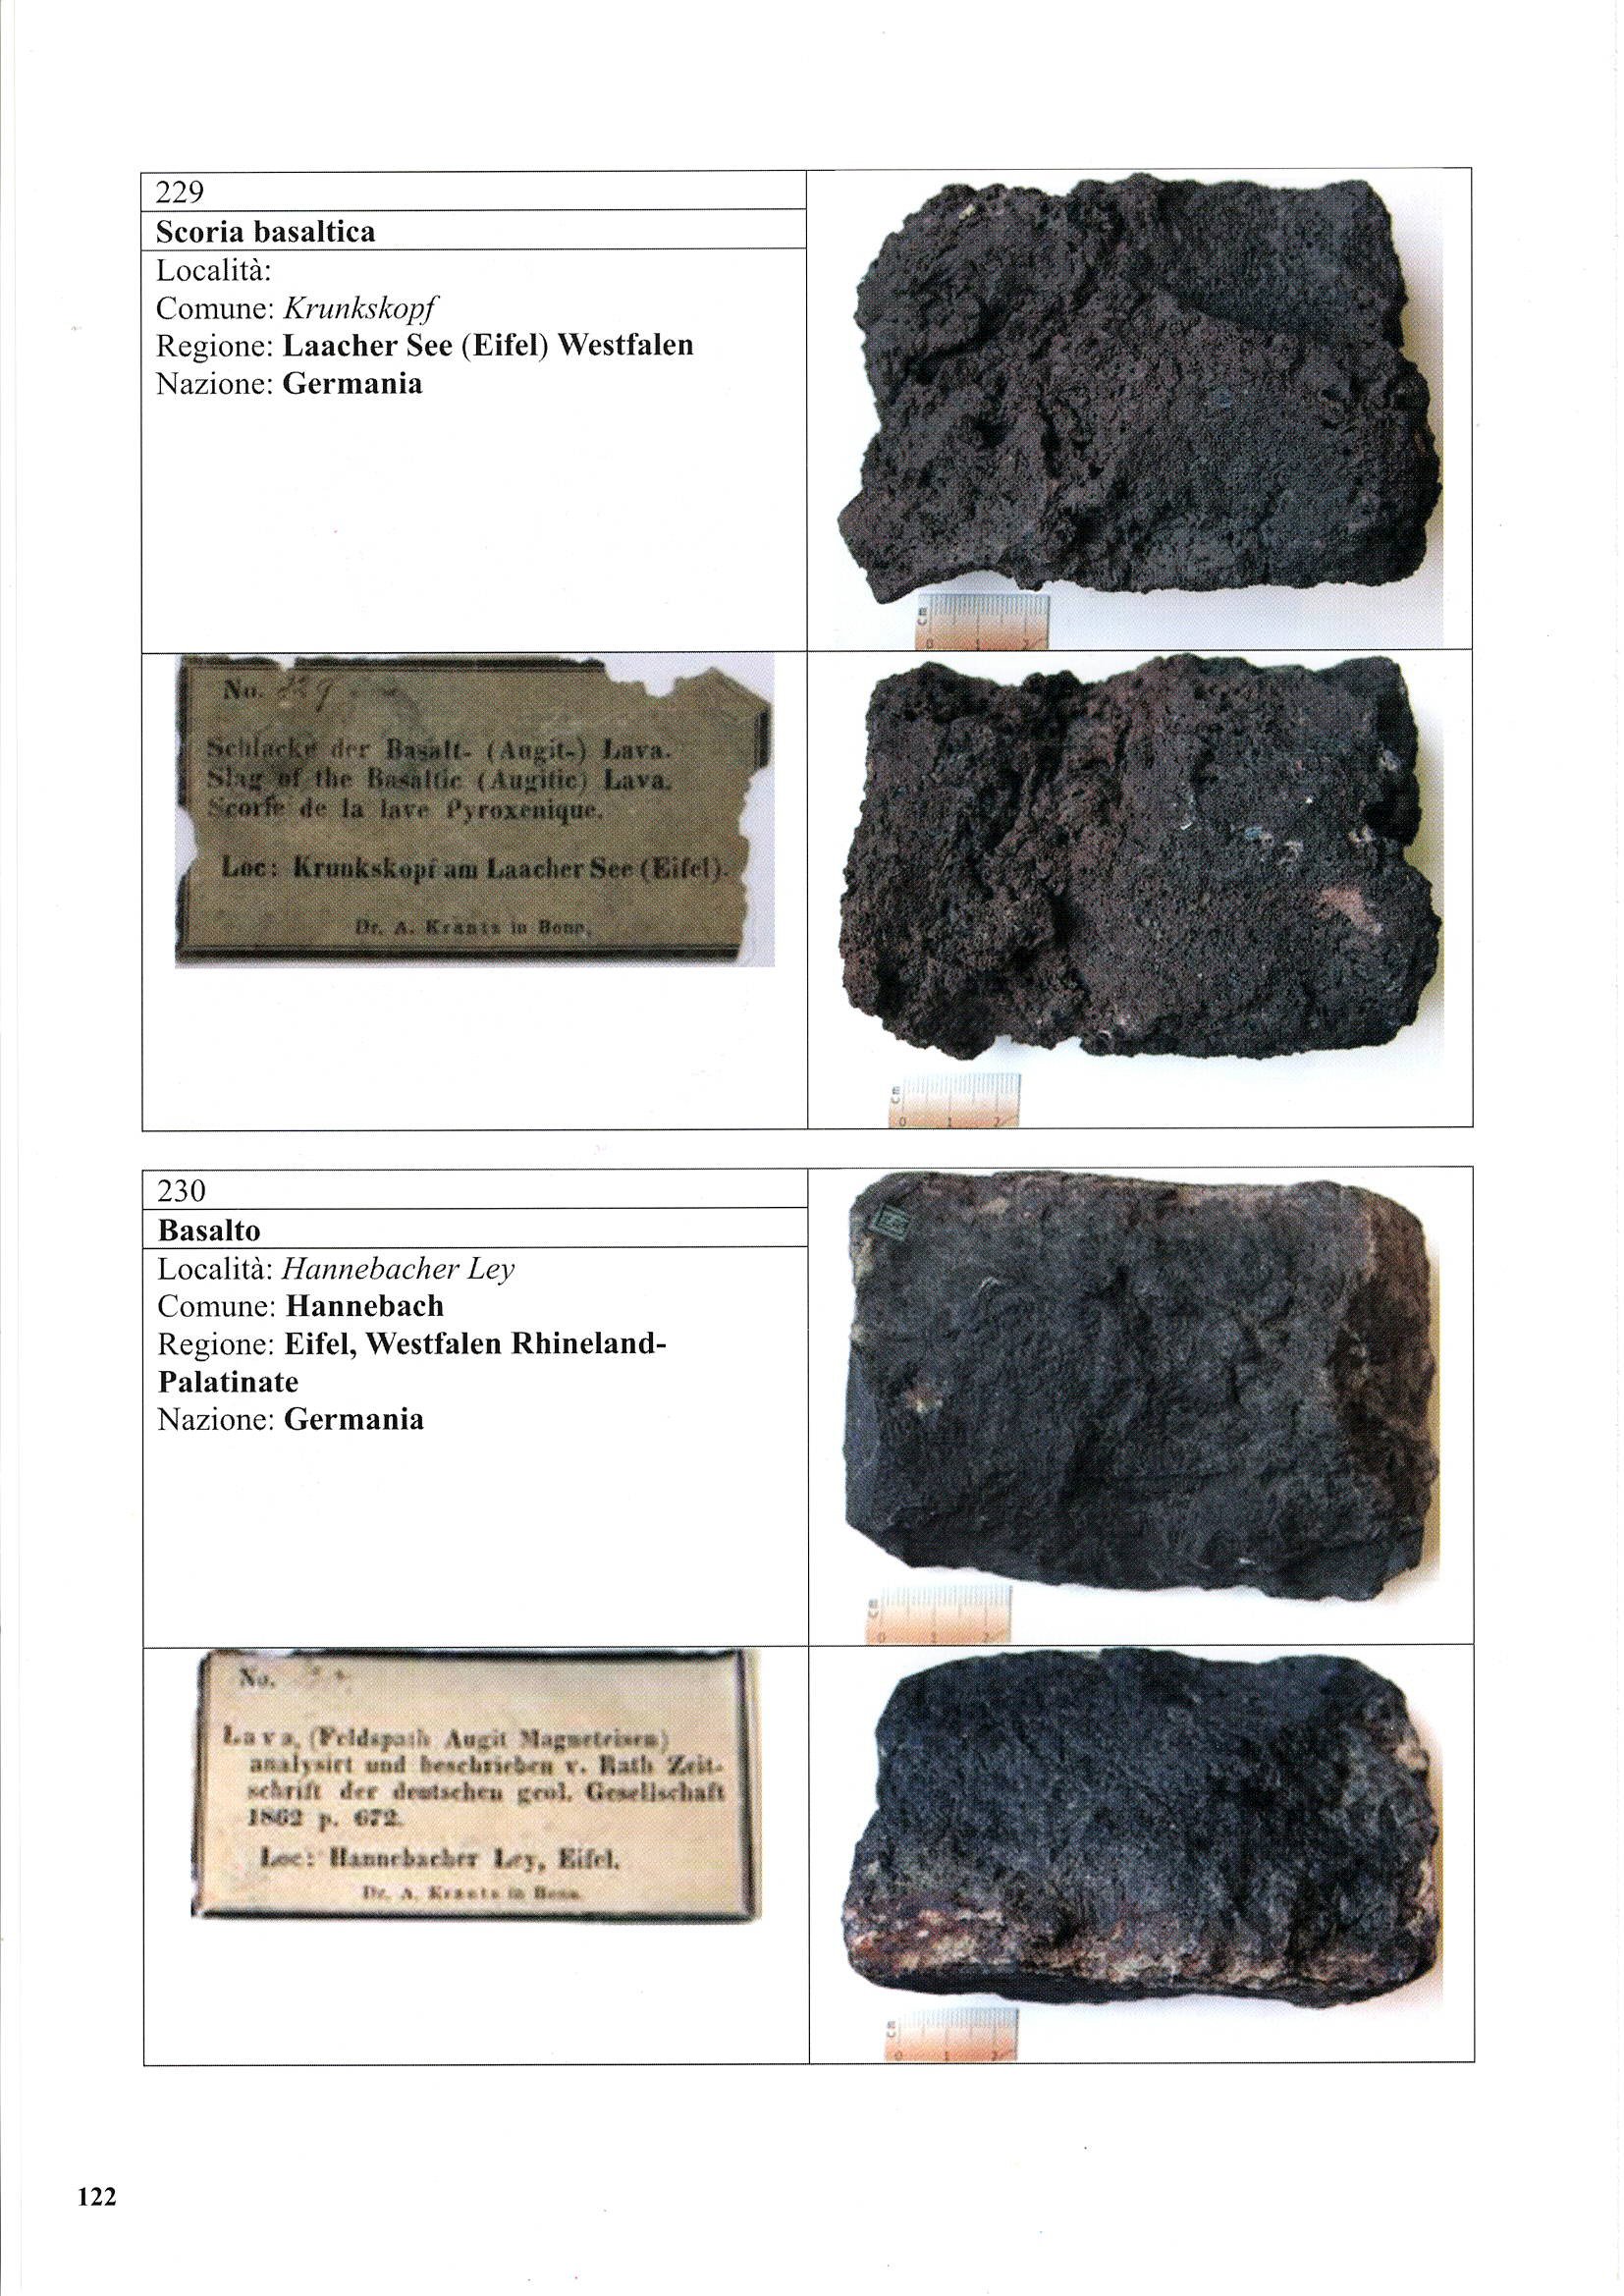 229
Scoria basaltica
Località:
Comune: Krunkskopf
Regione: Laacher See (Eifel) Westfalen
Nazione: Germania
cm
0 1 2
No. 229
Schlacke der Basalt- (Augit-) Lava.
Slag of the Basaltic (Augitic) Lava.
Scorie de la lave Pyroxenique.
Loc: Krunkskopf am Laacher See (Eifel).
Dr. A. Krantz in Bonn.
cm
0 1 2
230
Basalto
Località: Hannebacher Ley
Comune: Hannebach
Regione: Eifel, Westfalen Rhineland-
Palatinate
Nazione: Germania
cm
0 1 2
No.
Lava, (Feldspath Augit Magneteisen)
analysirt und beschrieben v. Rath Zeit-
schrift der deutschen geol. Gesellschaft
1862 p. 672.
Loc: Hannebacher Ley, Eifel.
Dr. A. Krantz in Bonn.
cm
0 1 2
122